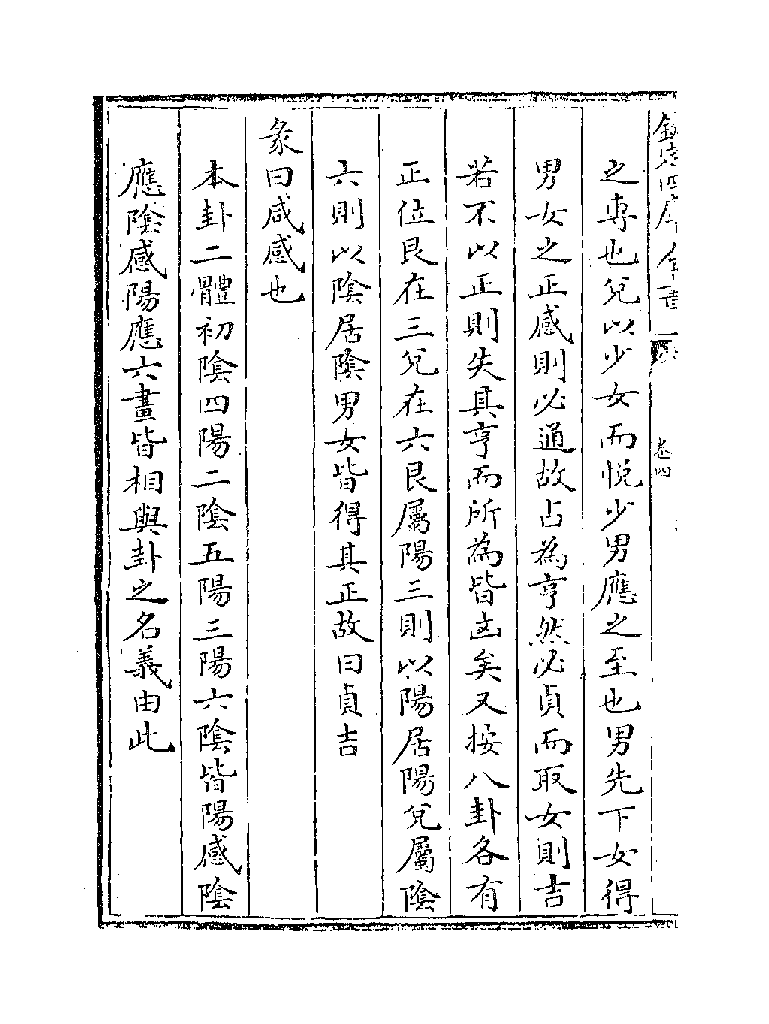 之專也兌以少女而悅少男應之至也男先下女得
男女之正感則必通故占為亨然必貞而取女則吉
若不以正則失其亨而所為皆凶矣又按八卦各有
正位艮在三兌在六艮屬陽三則以陽居陽兌屬陰
六則以陰居陰男女皆得其正故曰貞吉
彖曰咸感也
本卦二體初陰四陽二陰五陽三陽六陰皆陽感陰
應陰感陽應六畫皆相與卦之名義由此
卷四